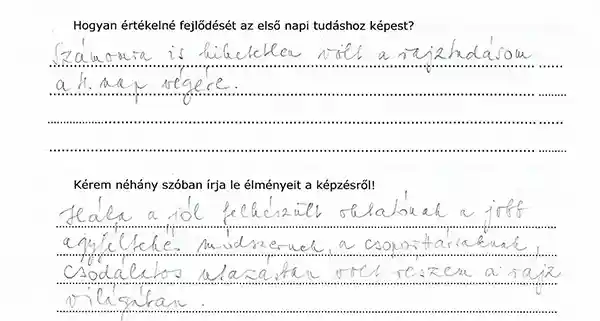 Hogyan értékelné fejlődését az első napi tudáshoz képest?
Számomra is hihetetlen volt a rajztudásom
a 4. nap végére.
Kérem néhány szóban írja le élményeit a képzésről!
Hála a jól felkészült oktatónak a jobb
agyféltekés módszernek, a csoporttársaknak,
csodálatos utazásban volt részem a rajz
világában.